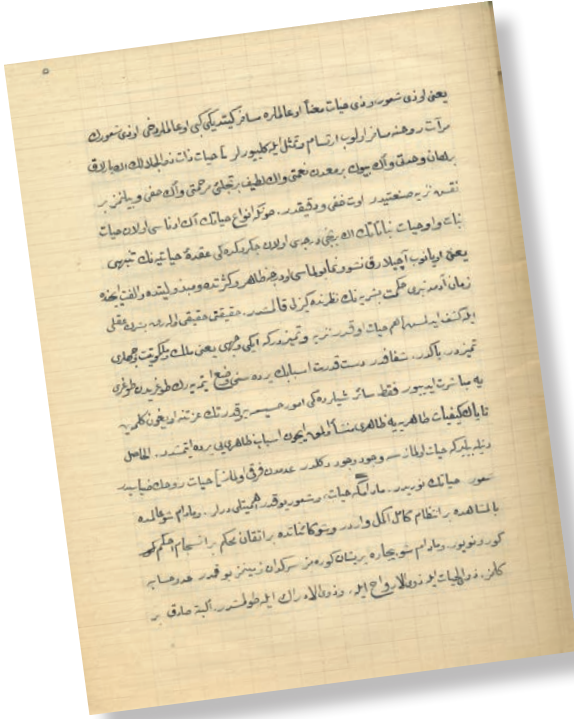 ٥
يعنى او ذى شعور و ذى حيات معناً او عالملره مسافر كيتديكى كبى او عالملر دخى او ذى شعورك
مرآت روحنه مسافر اولوب ارتسام و تمثل ايله كليورلر ] حيات ذات ذوالجلالك اك پارلاق
برهان وحدتى واك بيوك بر معدن نعمتى واك لطيف بر تجلئ رحمتى واك خفى و بيلنمز بر
نقش نزيه صنعتيدر. اوت خفى و دقيقدر. چونكه انواع حياتك اك ادناسى اولان حيات
نبات و او حيات نباتاتك اك برنجى درجه سى اولان چكردكده كى عقدۀ حياتيه نك تنبهى
يعنى اويانوب آچيلارق نشو و نما بولماسى او درجه ظاهر و كثرتده و مبذوليتده و الفت ايچنده
زمان آدمدنبرى حكمت بشريه نك نظرنده كيزلى قالمشدر. حقيقتى حقيقى اولارق بشرك عقلى
ايله كشف ايدلمه مش] هم حيات او قدر نزيه و تميزدر كه ايكى وجهى يعنى ملك و ملكوتيت وجهلرى
تميزدر پاكدر. شفافدر دست قدرت اسبابك پرده سنى وضع ايتميه رك طوغريدن طوغرى
يه مباشرت ايديور فقط سائر شيلرده كى امور خسيسه يه و قدرتك عزتنه اويغون كلمه ين
ناپاك كيفيات ظاهريه يه ظاهرى منشأ اولمق ايچون اسباب ظاهرى يى پرده ايتمشدر. الحاصل
دينيله بيلير كه حيات اولمازسه وجود وجود دكلدر عدمدن فرقى اولماز] حيات روحك ضياسيدر
شعور حياتك نوريدر. مادامكه حيات و شعور بو قدر اهميتليدرلر. و مادام شو عالمده
بالمشاهده بر انتظام كامل اكمل واردر و شو كائناتده بر اتقان محكم بر انسجام احكم
كورونويور. و مادام شو بيچاره پريشان كوره مز سركردان زمينمز بو قدر حد و حسابه
كلمز. ذوى الحيات ايله ذوى الارواح ايله. و ذوى الادراك ايله طولمشدر. البته صادق بر